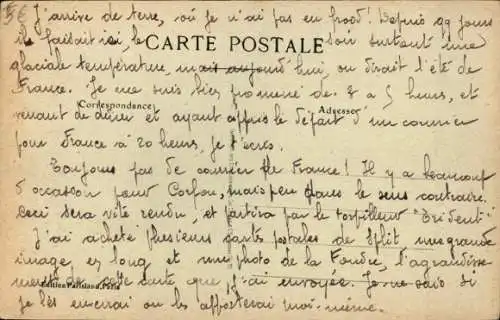 5e
J'arrive de terre, où je n'ai pas eu froid ! Depuis qq jours
il faisait ici, le soir surtout une
CARTE POSTALE
glaciale température, mais aujourd'hui, on dirait l'été de
France. Je me suis bien promené de 2 à 5 heures, et
Correspondance
Adresse
venant de dîner et ayant appris le départ d'un courrier
pour France à 20 heures, je t'écris.
Toujours pas de courrier de France ! Il y a beaucoup
d'occasion pour Corfou, mais peu dans le sens contraire.
Ceci sera vite rendu, et partira par le torpilleur "Trident"
J'ai acheté plusieurs cartes postales de Split, une grande
image en long et une photo de la Foudre, l'agrandisse
ment de cette carte que j'ai envoyée. Je ne sais si
Paris
je les enverrai ou les apporterai moi-même.